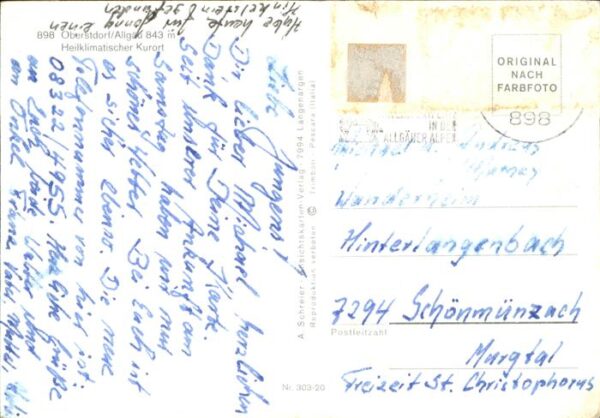 Habe heute für Jenny einen
gefunden
898 Oberstdorf/Allgäu 843 m
Heilklimatischer Kurort
Liebe Jungens!
Dir lieber Michael herzlichen
Dank für Deine Karte.
Seit unserer Ankunft am
Samstag haben wir nur
schönes Wetter. Bei Euch ist
es sicher ebenso. Die neue
Telefonnummer von hier ist:
08322/4955. Herzliche Grüße
am Ende
an Onkel
A. Schreier, Ansichtskarten-Verlag, 7994 Langenargen
Reproduktion verboten © Trimboli - Pescara (Italia)
Nr. 303-20
ORIGINAL
NACH
FARBFOTO
898
IN DEN
ALLGÄUER ALPEN
Wanderheim
Hinterlangenbach
7294 Schönmünzach
Postleitzahl
Murgtal
Freizeit St. Christophorus